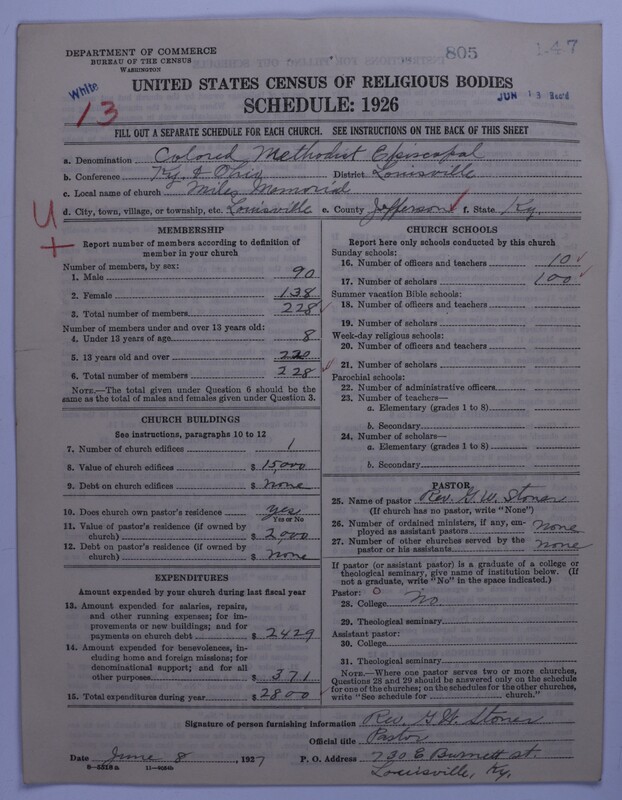 DEPARTMENT OF COMMERCE
BUREAU OF THE CENSUS
WASHINGTON
805
147
White
13
JUN 13 Rec'd
UNITED STATES CENSUS OF RELIGIOUS BODIES
SCHEDULE: 1926
FILL OUT A SEPARATE SCHEDULE FOR EACH CHURCH. SEE INSTRUCTIONS ON THE BACK OF THIS SHEET
a. Denomination Colored Methodist Episcopal
b. Conference Ky. & Ohio District Louisville
c. Local name of church Miles Memorial
d. City, town, village, or township, etc. Louisville e. County Jefferson f. State Ky.
U
+
MEMBERSHIP
Report number of members according to definition of
member in your church
Number of members, by sex:
1. Male 90
2. Female 138
3. Total number of members 228
Number of members under and over 13 years old:
4. Under 13 years of age 8
5. 13 years old and over 220
6. Total number of members 228
NOTE.—The total given under Question 6 should be the
same as the total of males and females given under Question 3.
CHURCH BUILDINGS
See instructions, paragraphs 10 to 12
7. Number of church edifices 1
8. Value of church edifices $ 15,000
9. Debt on church edifices $ None
10. Does church own pastor's residence yes
Yes or No
11. Value of pastor's residence (if owned by
church) $ 2,000
12. Debt on pastor's residence (if owned by
church) $ None
EXPENDITURES
Amount expended by your church during last fiscal year
13. Amount expended for salaries, repairs,
and other running expenses; for im-
provements or new buildings; and for
payments on church debt $ 2429
14. Amount expended for benevolences, in-
cluding home and foreign missions; for
denominational support; and for all
other purposes $ 371
15. Total expenditures during year $ 2800
CHURCH SCHOOLS
Report here only schools conducted by this church
Sunday schools:
16. Number of officers and teachers 10
17. Number of scholars 100
Summer vacation Bible schools:
18. Number of officers and teachers
19. Number of scholars
Week-day religious schools:
20. Number of officers and teachers
21. Number of scholars
Parochial schools:
22. Number of administrative officers
23. Number of teachers—
a. Elementary (grades 1 to 8)
b. Secondary
24. Number of scholars—
a. Elementary (grades 1 to 8)
b. Secondary
PASTOR
25. Name of pastor Rev. G. W. Stoner
(If church has no pastor, write "None")
26. Number of ordained ministers, if any, em-
ployed as assistant pastors None
27. Number of other churches served by the
pastor or his assistants None
If pastor (or assistant pastor) is a graduate of a college or
theological seminary, give name of institution below. (If
not a graduate, write "No" in the space indicated.)
Pastor: 0
28. College No
29. Theological seminary
Assistant pastor:
30. College
31. Theological seminary
NOTE.—Where one pastor serves two or more churches,
Questions 28 and 29 should be answered only on the schedule
for one of the churches; on the schedules for the other churches,
write "See schedule for church."
Signature of person furnishing information Rev. G. W. Stoner
Official title Pastor
Date June 8, 1927 P. O. Address 730 E Burnett st.
Louisville, Ky.